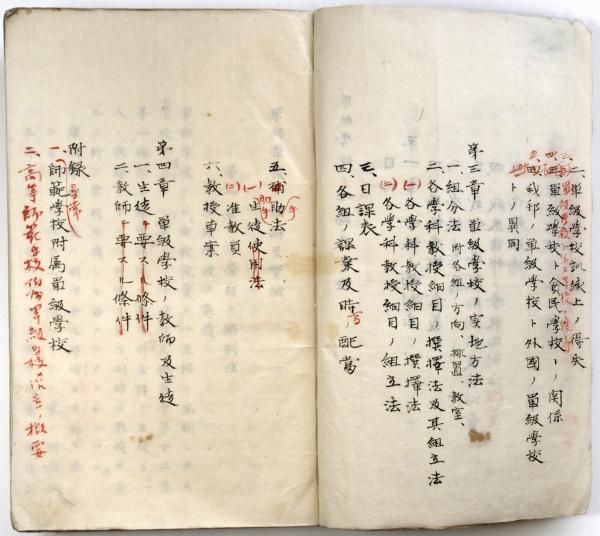 二、單級學校訓練上ノ得失
四、單級學校ト貧民學校トノ関係
四、我邦ノ單級學校ト外國ノ單級學校
トノ異同
第三章 單級學校ノ実地方法
一、組分法 附各組ノ方向、排置、教室、
二、各學科教授細目ノ撰擇法及其組立法
(一)各學科教授細目ノ撰擇法
(二)各學科教授細目ノ組立法
三、日課表
四、各組ノ課業及時ノ配當
五、補助法
(一)生徒使用法
助手
(二)准教員
六、教授草案
第四章 單級學校ノ教師及生徒
一、生徒ニ要スル條件
二、教師ニ要スル條件
附録
尋常
一、師範學校附属單級學校
二、高等師範学校附属單級学校ノ概要